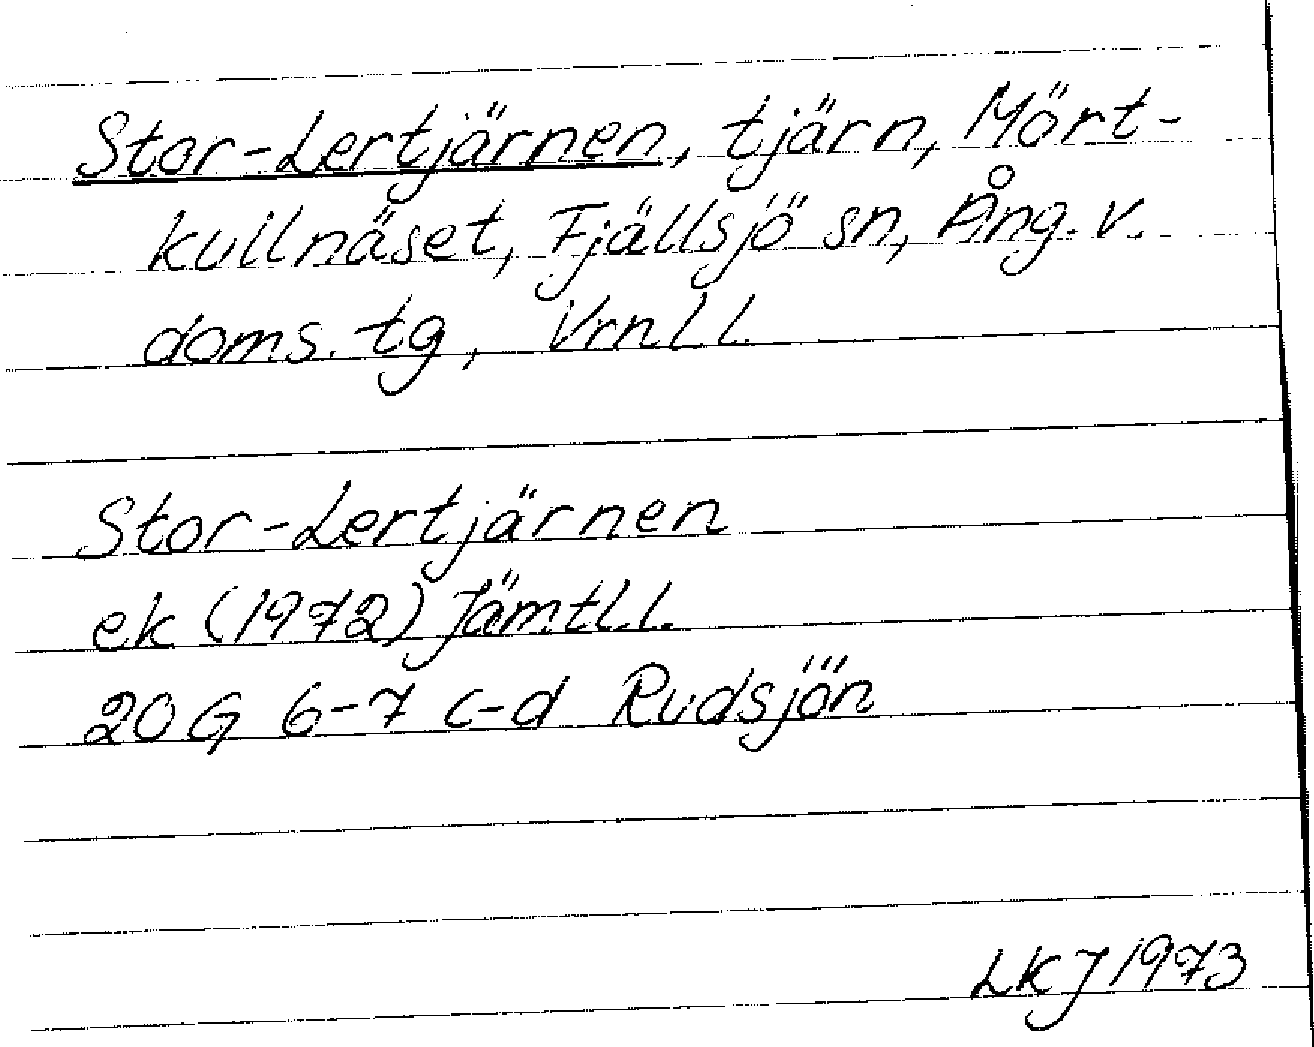 Stor-Lertjärnen, tjärn, Mört-
kullnäset, Fjällsjö sn, Ång. v.
doms. tg, Vrnll.
Stor-Lertjärnen
ek (1972) Jämtll.
20 G 6-7 c-d Rudsjön
LKJ 1973